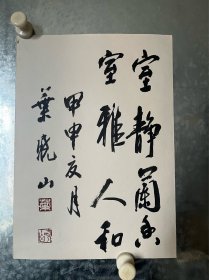 室静兰香
室雅人和
甲申夏月
葉晓山